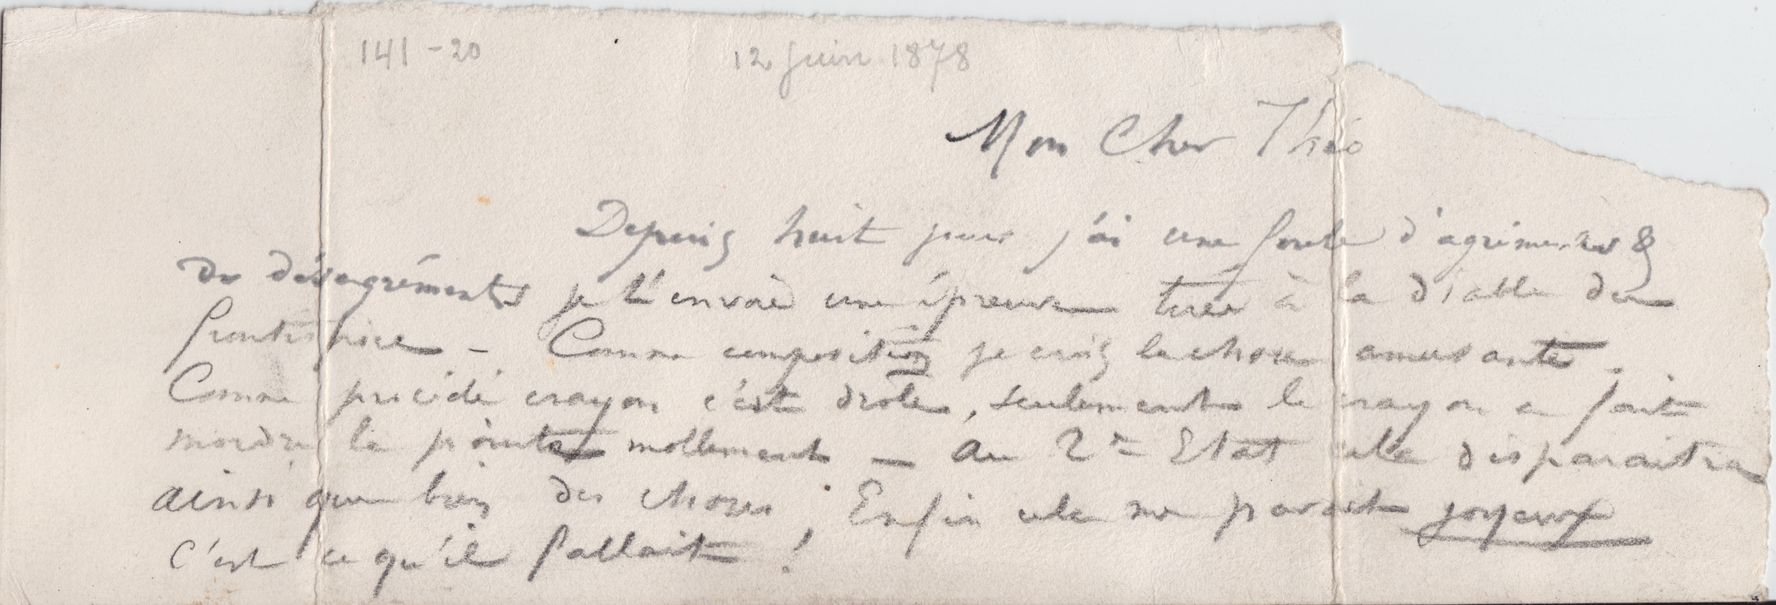 141-20
12 Juin 1878
Mon Cher Théo
Depuis huit jours j'ai une foule d'agréments &
de désagréments je t'envoie une épreuve tirée à la diable du
frontispice – Comme composition je crois la chose amusante.
Comme procédé crayon c'est drôle, seulement le crayon a fait
mordre la pointe mollement – Au 2e Etat cela disparaitra
ainsi que bien des choses. Enfin cela me parait joyeux
c'est ce qu'il fallait !